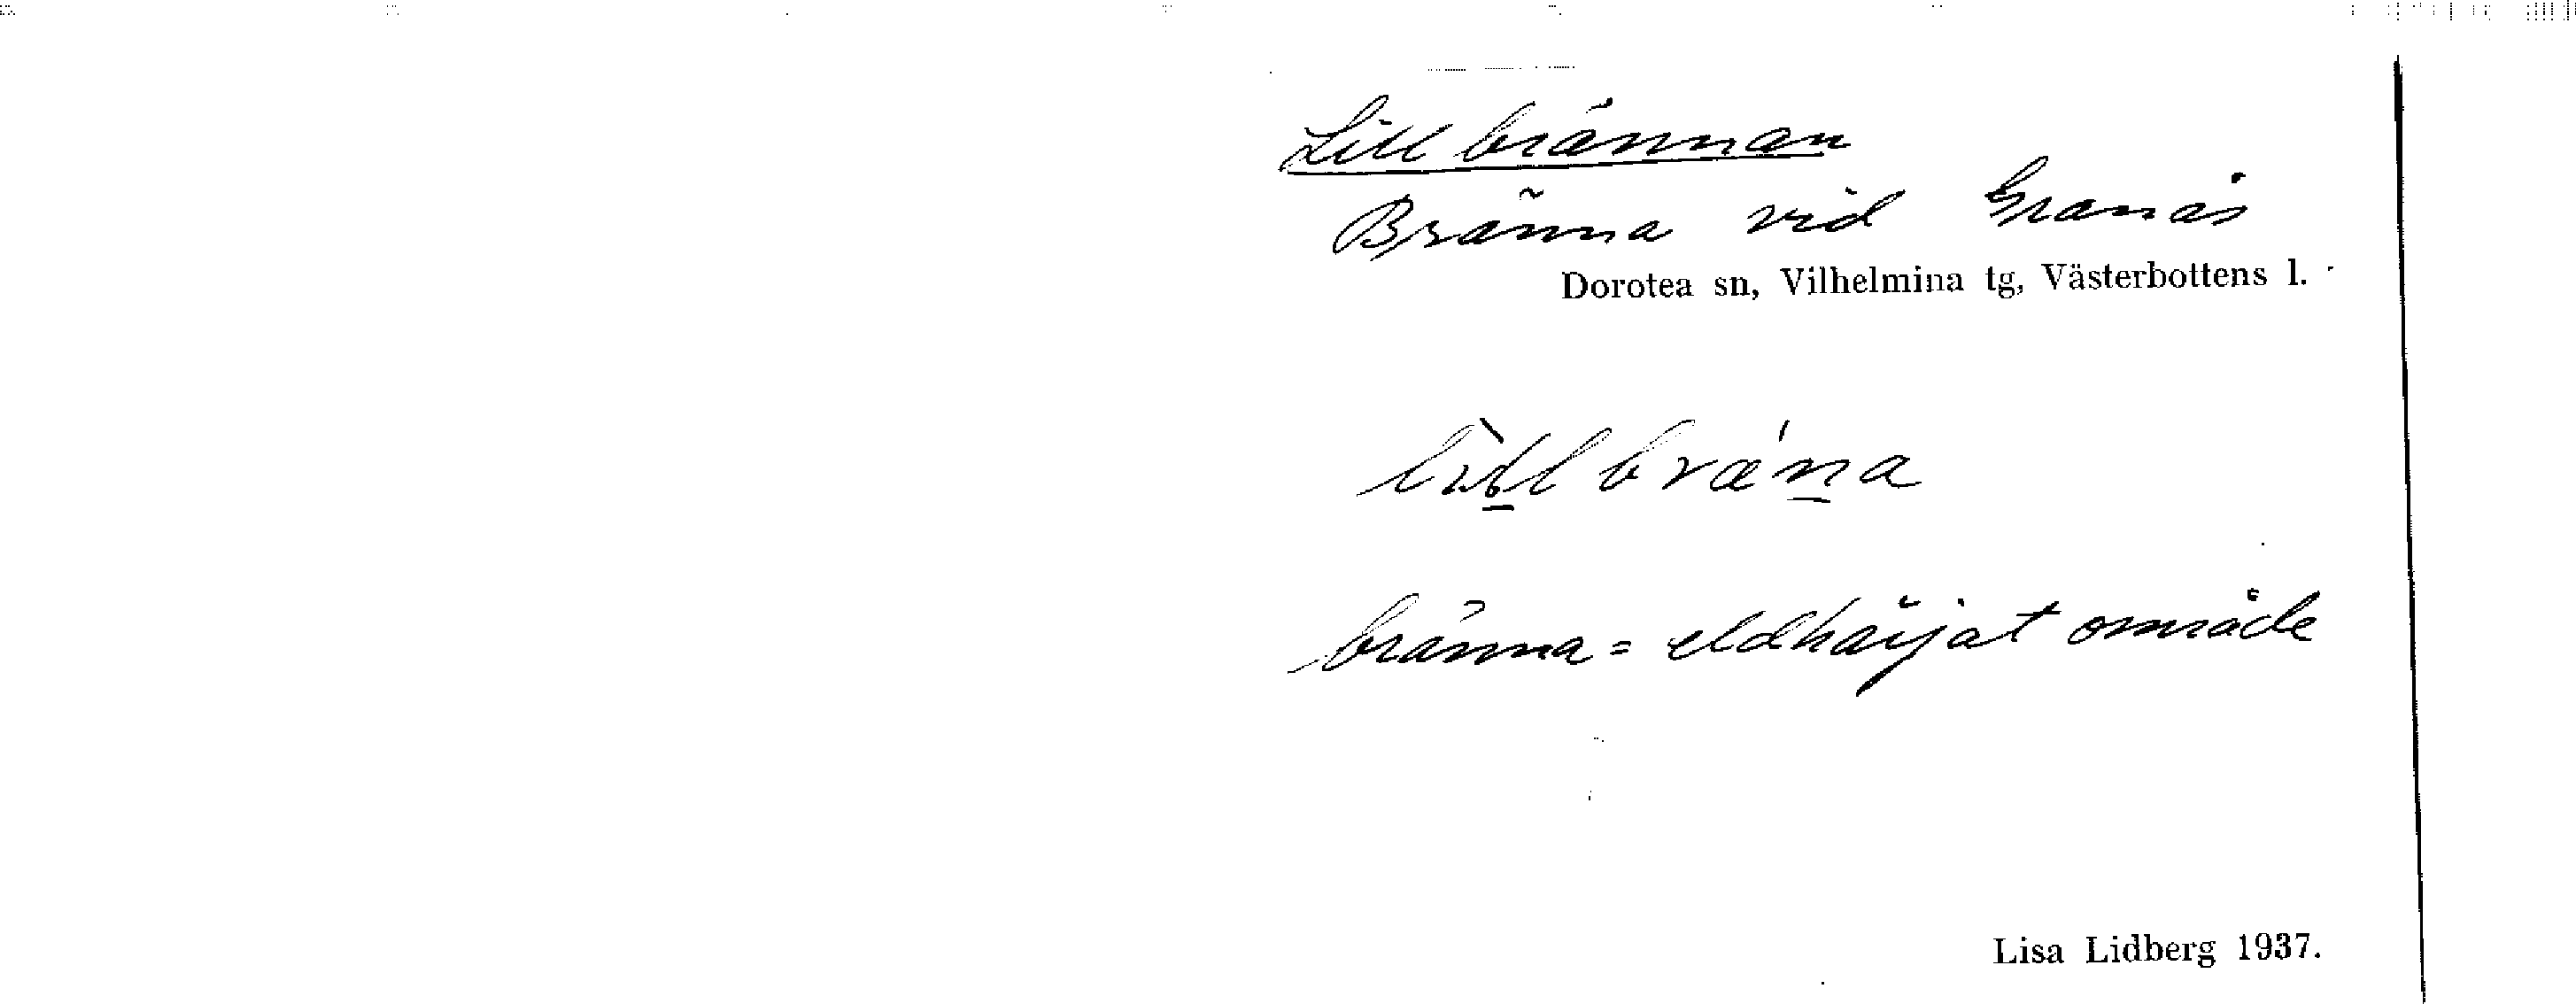 Lillbrännan
Bränna vid Granås
Dorotea sn, Vilhelmina tg, Västerbottens l.
bränna = eldhärjat område
Lisa Lidberg 1937.